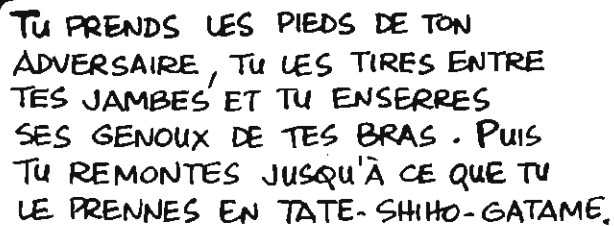 TU PRENDS LES PIEDS DE TON
ADVERSAIRE, TU LES TIRES ENTRE
TES JAMBES ET TU ENSERRES
SES GENOUX DE TES BRAS. PUIS
TU REMONTES JUSQU'À CE QUE TU
LE PRENNES EN TATE-SHIHO-GATAME.